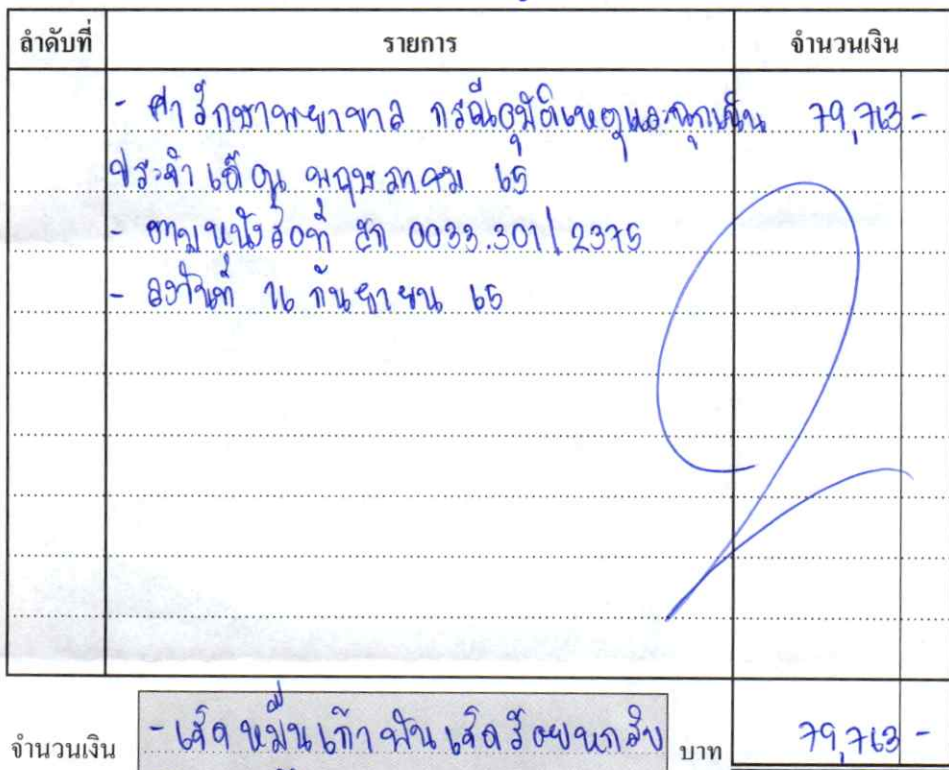 ลำดับที่ รายการ จำนวนเงิน
- ค่ารักษาพยาบาล กรณีอุบัติเหตุและฉุกเฉิน 79,763 -
ประจำเดือน พฤษภาคม 65
- ตามหนังสือที่ สก 0033.301/2375
- ลงวันที่ 26 กันยายน 65
จำนวนเงิน - เจ็ดหมื่นเก้าพันเจ็ดร้อยหกสิบ บาท 79,763 -